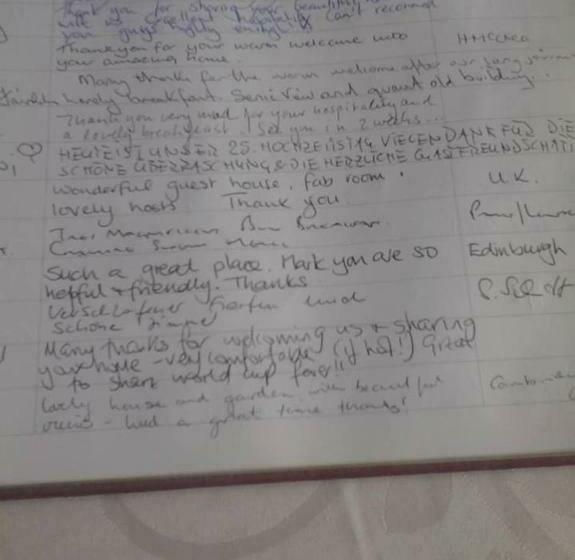 Thank you for sharing your beautiful
you guys highly enough Can't recommend
Thank you for your warm welcome into
your amazing home.
Many thanks for the warm welcome after our long journey
lovely breakfast. Scenic view and quaint old building.
Thank you very much for your hospitality and
a lovely breakfast! See you in 2 weeks...
HEUTE IST UNSER 25. HOCHZEITSTAG VIELEN DANK FÜR DIE
SCHÖNE ÜBERRASCHUNG & DIE HERZLICHE GASTFREUNDSCHAFT
Wonderful guest house, fab room. U.K.
lovely hosts Thank you.
Such a great place. Mark you are so Edinburgh
helpful + friendly. Thanks
Verschlafener Garten und
schöne Zimmer
Many thanks for welcoming us + sharing
your home - very comfortable (if hot!) Great
to share world cup fever!!
lovely house and garden, with beautiful
- had a great time thanks!